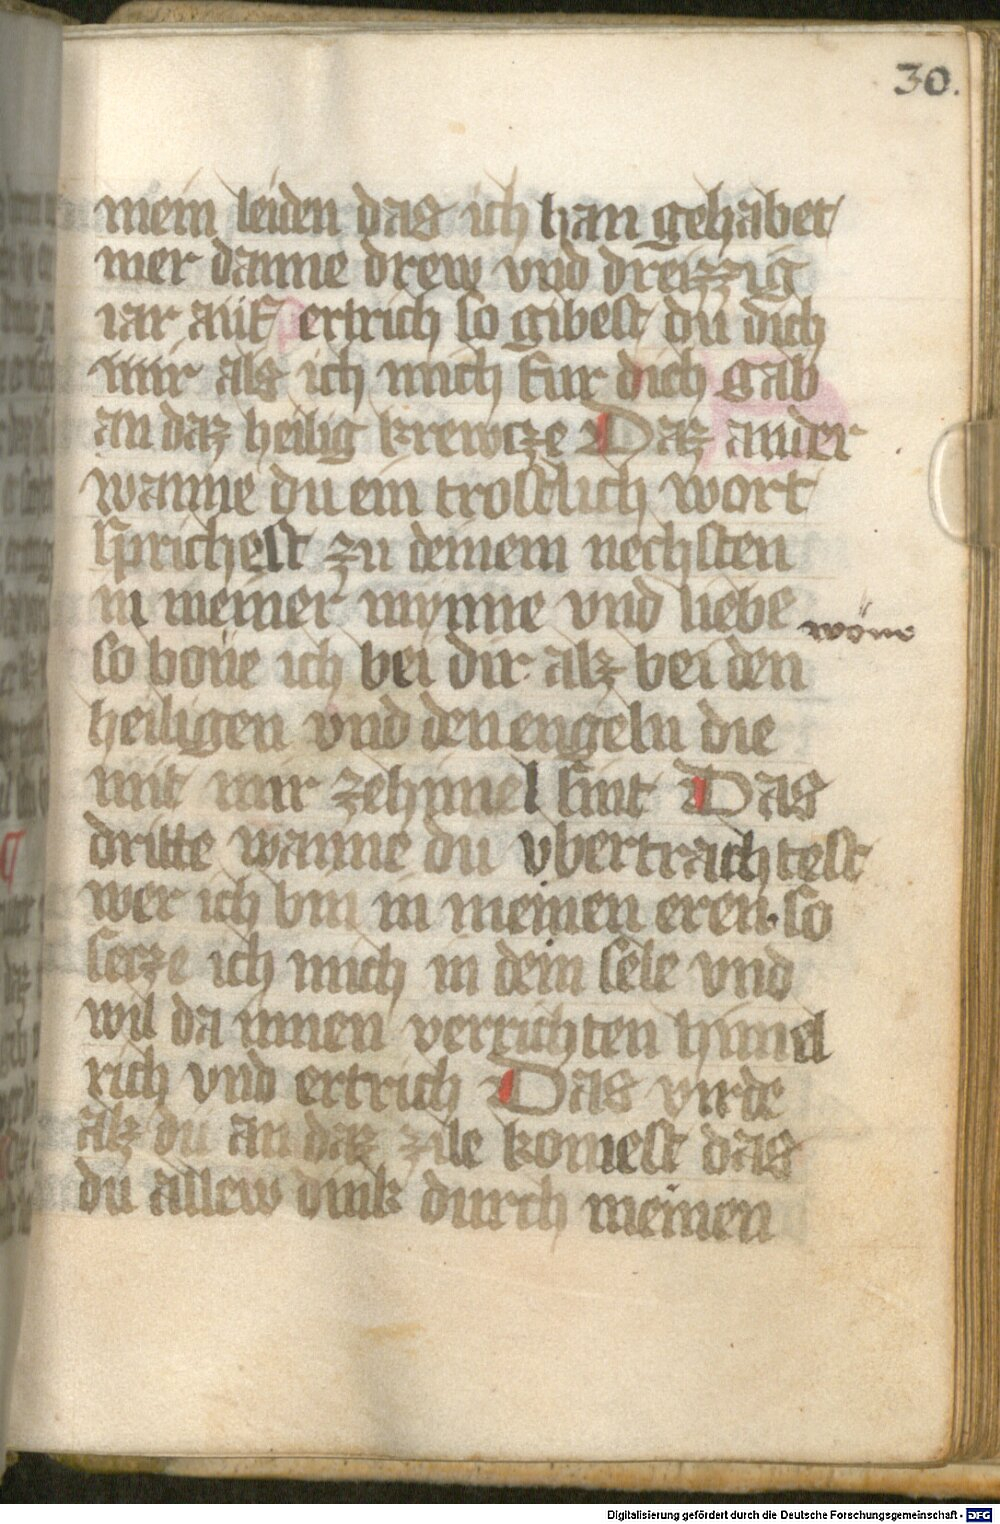 30.
mein leiden das ich han gehabet
mer danne drew vnd dreizzig
iar auf ertrich so gibest du dich
mir als ich mich fur dich gab
an daz heilig krewcze Daz ander
wanne du ein trostlich wort
sprichest zu deinem nechsten
in meiner mynne vnd liebe
so bin ich bei dir alz bei den
heiligen vnd den engeln die
mit mir ze himel sint Das
dritte wanne du vbertrachtest
wer ich bin in meinen eren. so
secze ich mich in dein sele vnd
wil da innen verrichten himel
rich vnd ertrich Das virde
alz du an daz zile komest das
du allew dink durch meinen
Digitalisierung gefördert durch die Deutsche Forschungsgemeinschaft - DFG